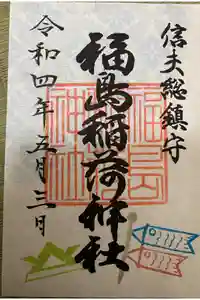 信夫総鎮守
福島稲荷神社
令和四年五月三日